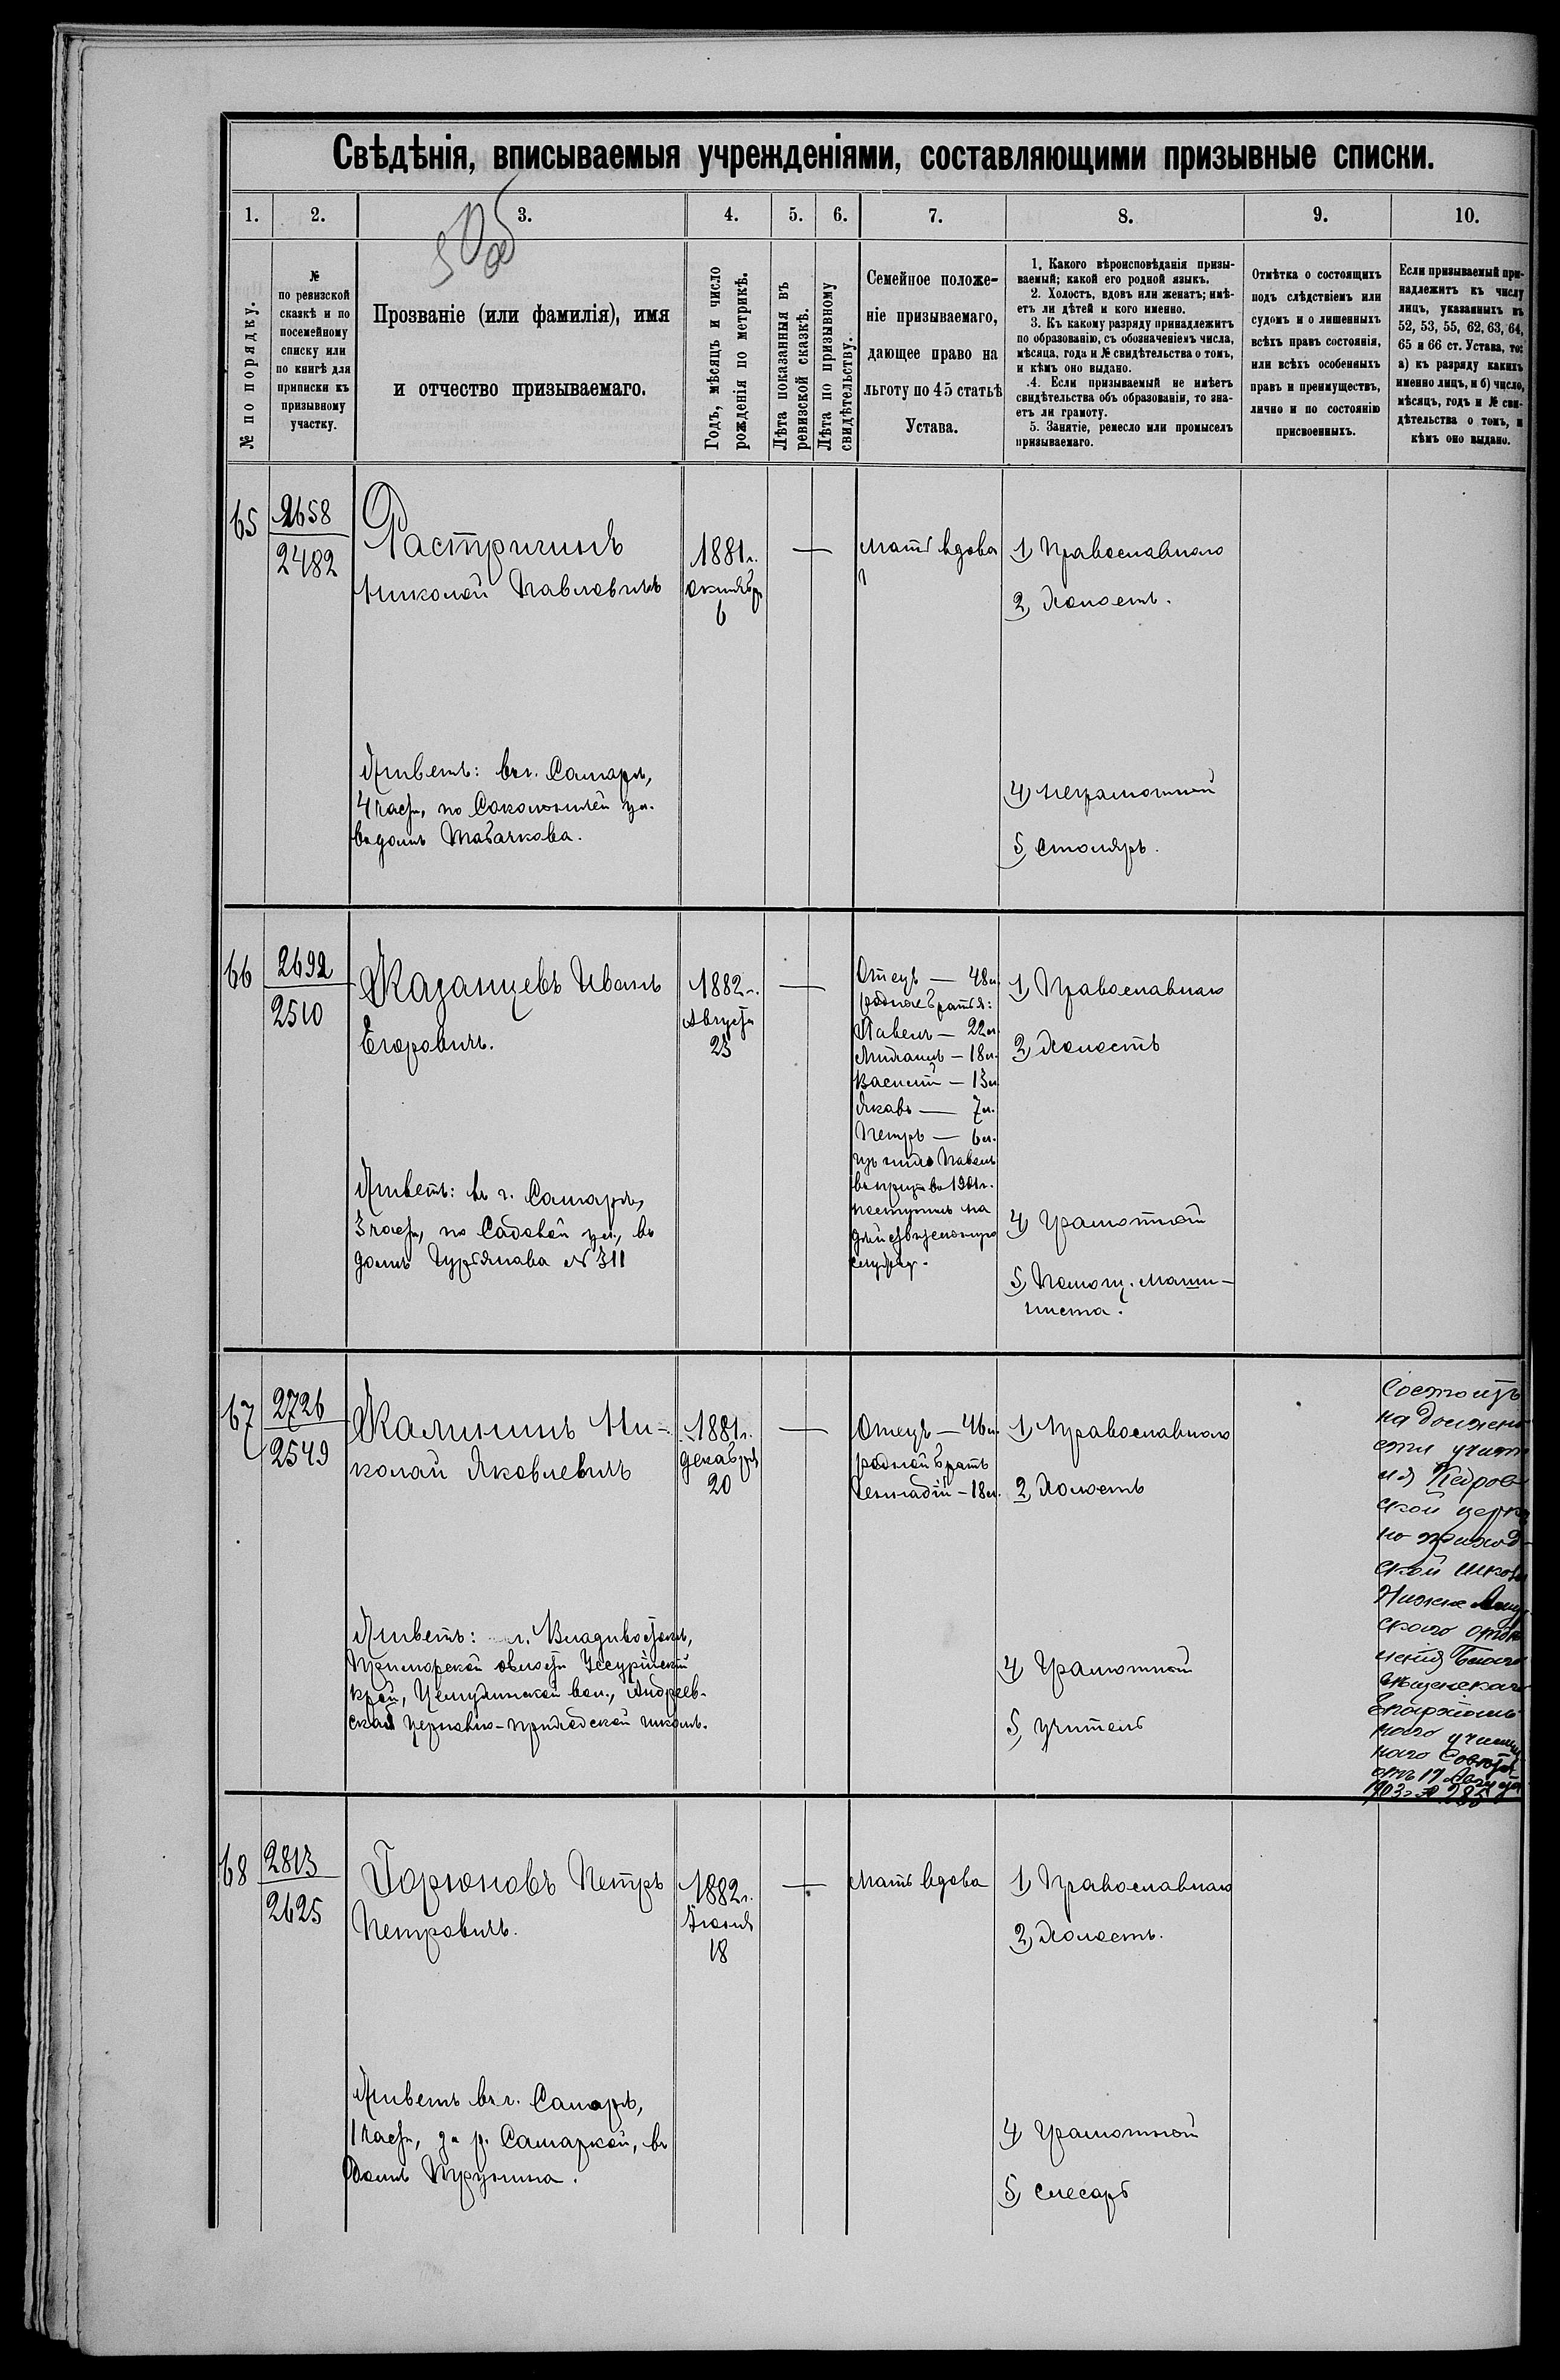 Свѣдѣнія, вписываемыя учрежденіями, составляющими призывные списки.
1. 2. 3. 4. 5. 6. 7. 8. 9. 10.
№ по порядку.
№
по ревизской
сказкѣ и по
посемейному
списку или
по книгѣ для
приписки къ
призывному
участку.
Прозваніе (или фамилія), имя
и отчество призываемаго.
Годъ, мѣсяцъ и число
рожденія по метрикѣ.
Лѣта показанныя въ
ревизской сказкѣ.
Лѣта по призывному
свидѣтельству.
Семейное положе-
ніе призываемаго,
дающее право на
льготу по 45 статьѣ
Устава.
1. Какого вѣроисповѣданія призы-
ваемый; какой его родной языкъ.
2. Холостъ, вдовъ или женатъ; имѣ-
етъ ли дѣтей и кого именно.
3. Къ какому разряду принадлежитъ
по образованію, съ обозначеніемъ числа,
мѣсяца, года и № свидѣтельства о томъ,
и кѣмъ оно выдано.
4. Если призываемый не имѣетъ
свидѣтельства объ образованіи, то зна-
етъ ли грамоту.
5. Занятіе, ремесло или промыселъ
призываемаго.
Отмѣтка о состоящихъ
подъ слѣдствіемъ или
судомъ и о лишенныхъ
всѣхъ правъ состоянія,
или всѣхъ особенныхъ
правъ и преимуществъ,
лично и по состоянію
присвоенныхъ.
Если призываемый при-
надлежитъ къ числу
лицъ, указанныхъ въ
52, 53, 55, 62, 63, 64,
65 и 66 ст. Устава, то:
а) къ разряду какихъ
именно лицъ, и б) число,
мѣсяцъ, годъ и № сви-
дѣтельства о томъ, и
кѣмъ оно выдано.
65
2658
2482
Растригинъ
Николай Павловичъ
Живетъ: въ г. Самарѣ,
4 части, по Сокольничей ул.
въ домѣ Табачкова.
1881 г.
октября
6
—
мать вдова
1) Православнаго
2) Холостъ.
4) неграмотной
5) Столяръ.
66
2692
2510
Казанцевъ Иванъ
Егоровичъ.
Живетъ: въ г. Самарѣ,
3 части, по Садовой ул., въ
домѣ Гурьянова № 311
1882 г.
Августа
23
—
Отецъ — 48 л.
родные братья:
Павелъ — 22 л.
Михаилъ — 18 л.
Василій — 13 л.
Яковъ — 7 л.
Петръ — 6 л.
изъ нихъ Павелъ
въ призывъ 1901 г.
поступилъ на
дѣйствительную
службу.
1) Православнаго
2) Холостъ
4) Грамотной
5) Помощ. Маши-
ниста.
67
2726
2549
Калининъ Ни-
колай Яковлевичъ
Живетъ: г. Владивостокъ,
Приморской области Уссурійскій
край, Цемухинской вол., Андреев-
ская церковно-приходской школѣ.
1881 г.
декабря
20
—
Отецъ — 46 л.
родной братъ
Геннадій — 18 л.
1) Православнаго
2) Холостъ
4) Грамотной
5) учитель
Состоитъ
на должно
сти учите
ля
ской церко
но приход
ской школы
Нижне Аму
скаго отдѣ
ленія Благо
вѣщенскаго
Епархіаль
наго училищ
наго Совѣта
отъ 17 Августа
1903 г. № 285
68
2813
2625
Горюновъ Петръ
Петровичъ.
Живетъ въ г. Самарѣ,
1 части, за р. Самаркой, въ
домѣ
1882 г.
Іюня
18
—
мать вдова
1) Православнаго
2) Холостъ.
4) Грамотной
5) слесарь